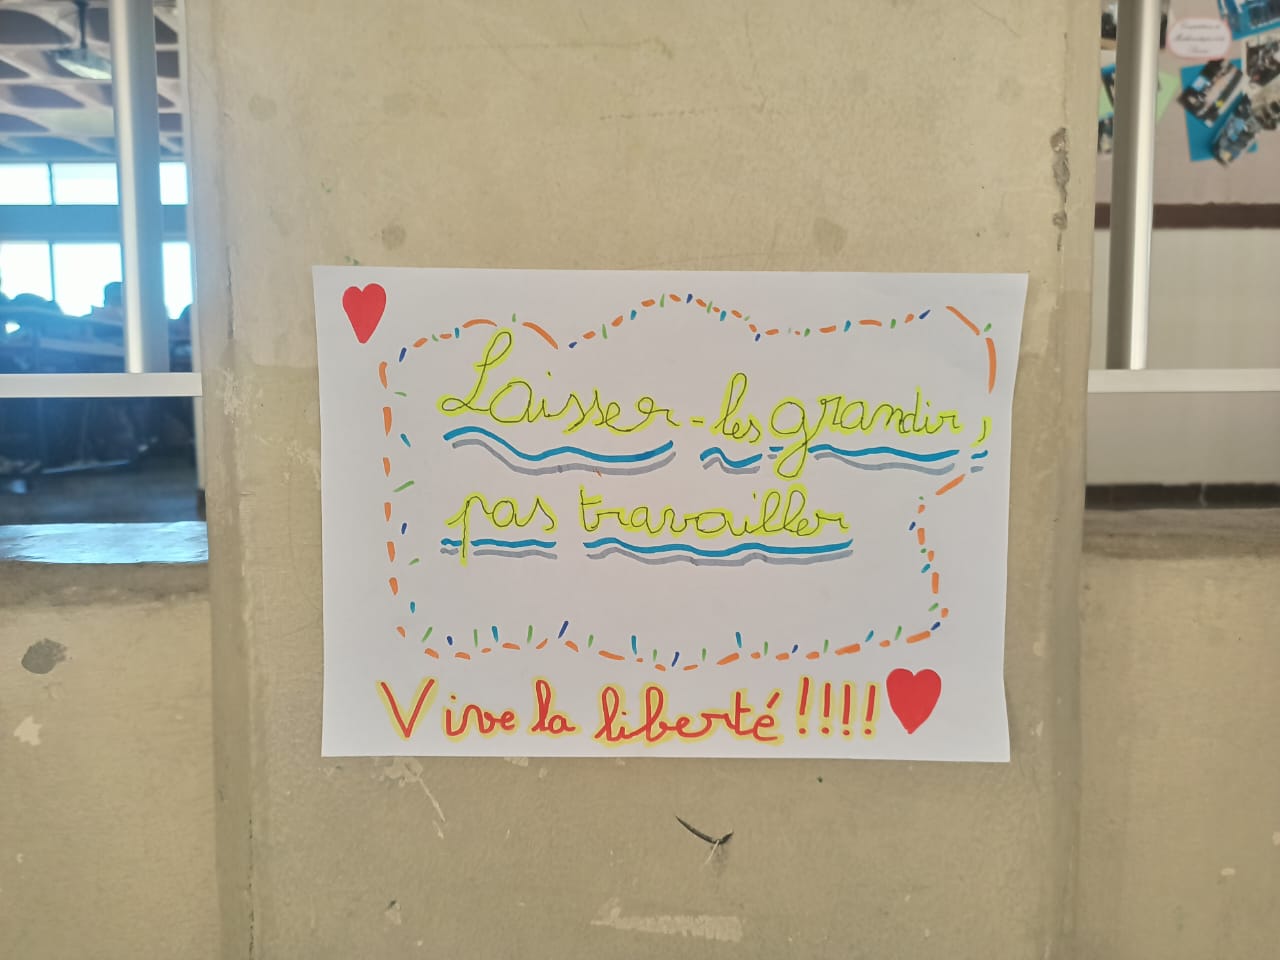 Laisser-les grandir,
pas travailler
Vive la liberté!!!!